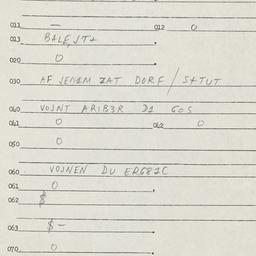 011 — 012 0
013 BALE, JT+
020 0
030 AF JENIM ZAT DORF / S+TUT
040 VOJNT ARIB3R D1 GOS
041 0 042 0
050 0
060 VOJNEN DU ERG82C
061 0
062 $
063 $ —
070 0